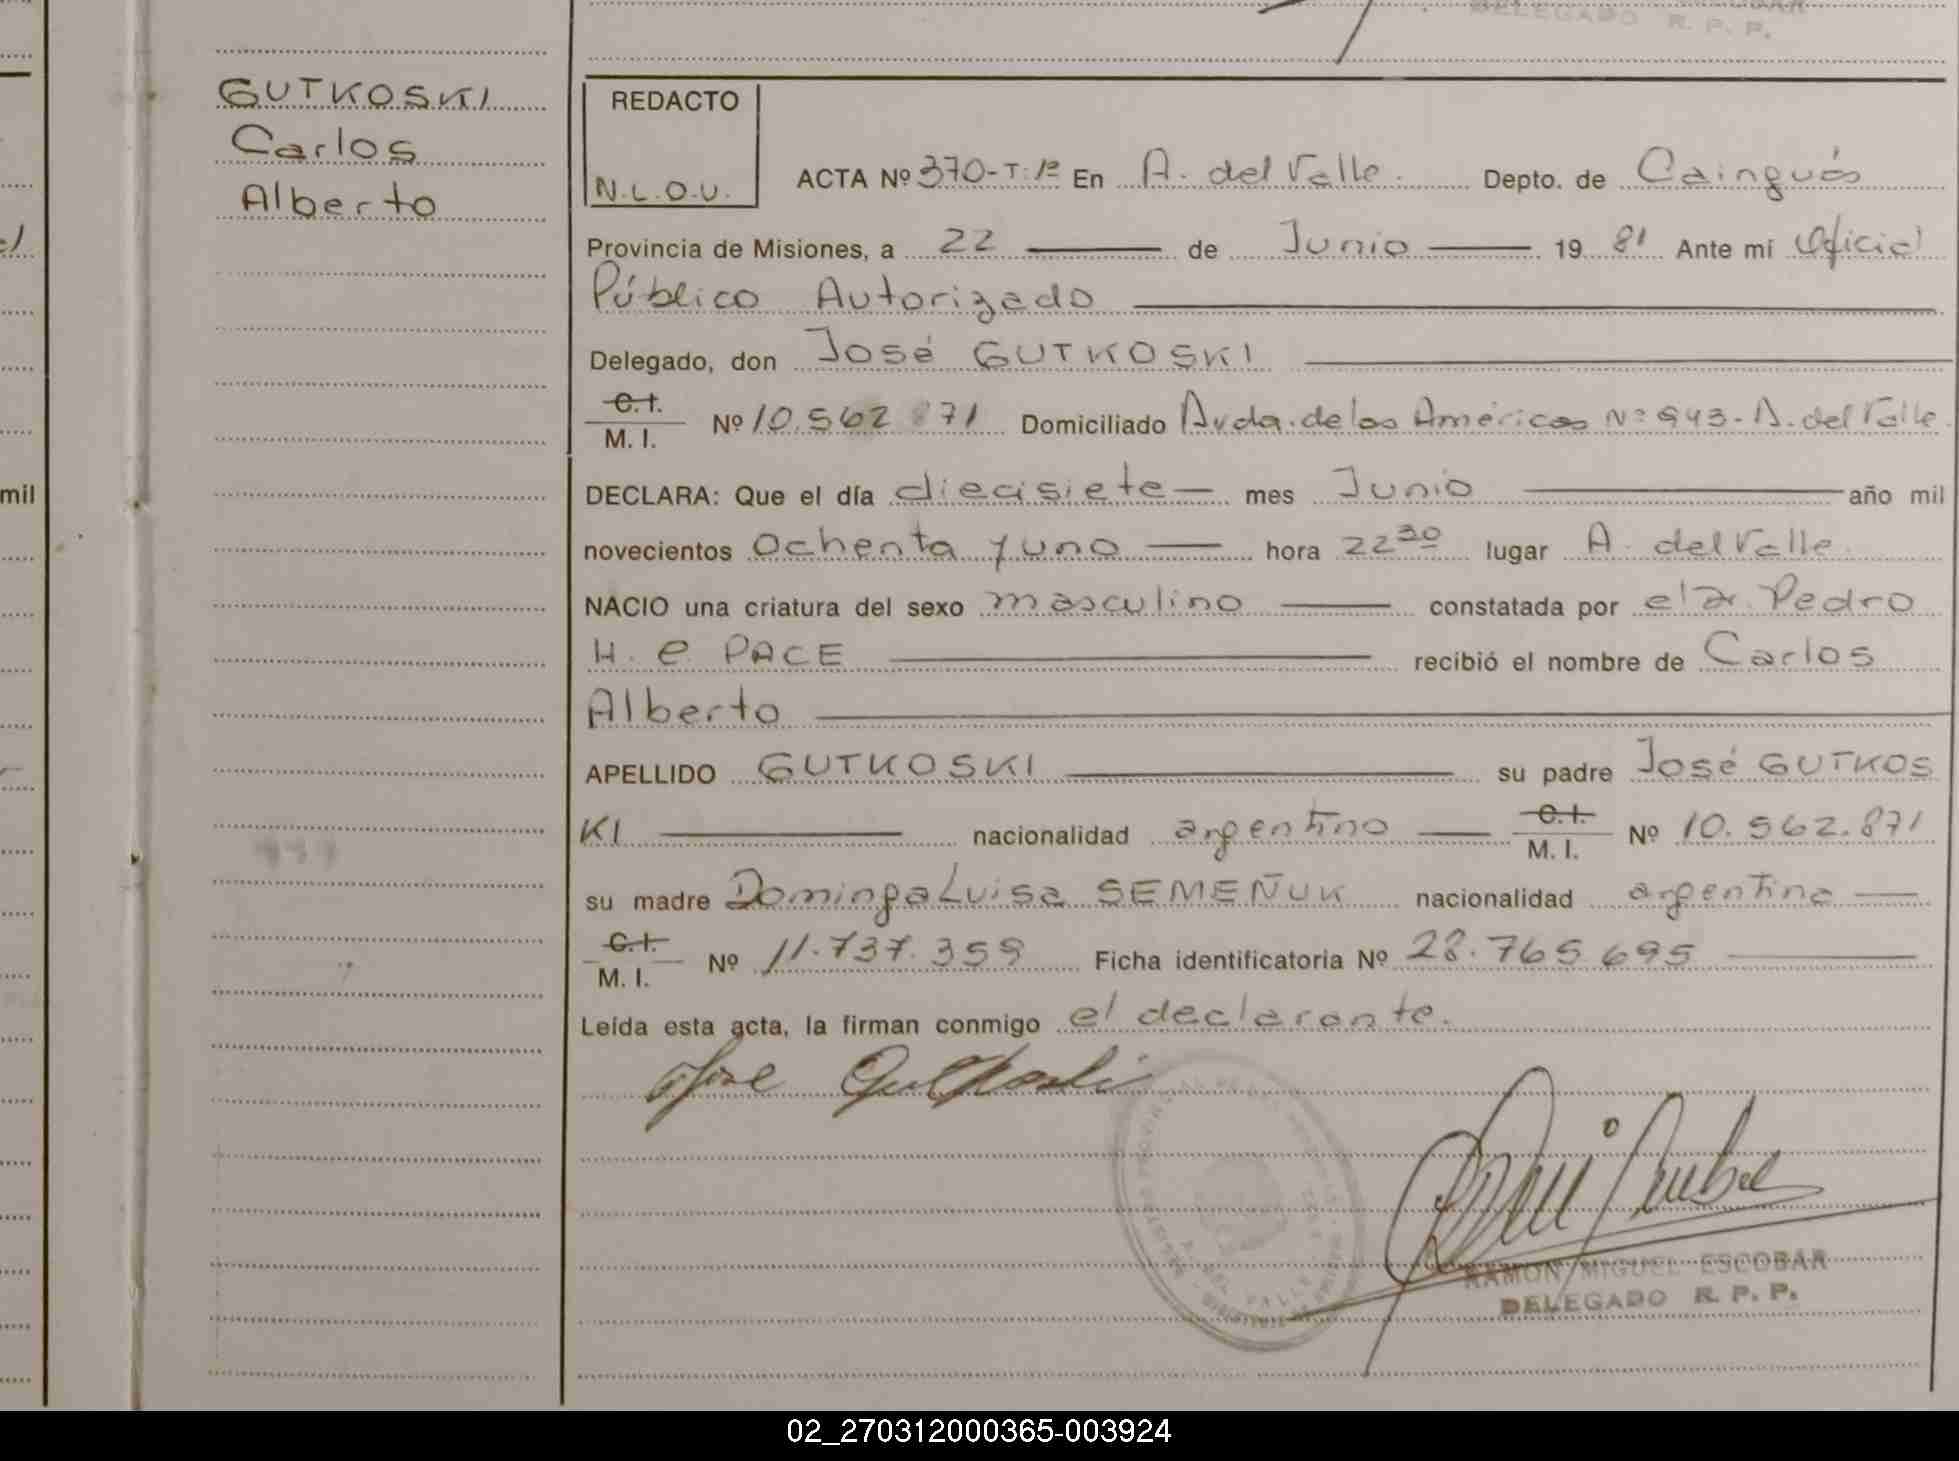 DELEGADO R. P. P.
GUTKOSKI
Carlos
Alberto
mil
REDACTO
N.L.O.U.
ACTA Nº 370-T:1º En A. del Valle. Depto. de Cainguás
Provincia de Misiones, a 22 de Junio 19 81 Ante mí Oficial
Público Autorizado
Delegado, don José GUTKOSKI
C.I.
M. I. Nº 10.562 871 Domiciliado Avda. de las Américas Nº 943 - A. del Valle.
DECLARA: Que el día diecisiete mes Junio año mil
novecientos Ochenta y uno hora 22 30 lugar A. del Valle.
NACIO una criatura del sexo masculino constatada por el Dr. Pedro
H. e PACE recibió el nombre de Carlos
Alberto
APELLIDO GUTKOSKI su padre José GUTKOS
KI nacionalidad argentino C.I. M. I. Nº 10.562.871
su madre Dominga Luisa SEMEÑUK nacionalidad argentina
C.I.
M. I. Nº 11.737.359 Ficha identificatoria Nº 28.765.695
Leída esta acta, la firman conmigo el declarante.
Jose Gutkoski
A. DEL VALLE
RAMON MIGUEL ESCOBAR
DELEGADO R. P. P.
02_270312000365-003924